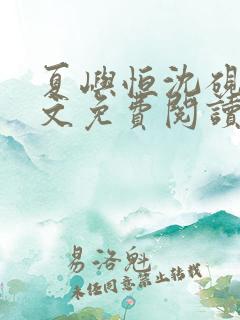 夏嶼恒沈硯
文免費閱讀
易洛魁
未经同意禁止转载